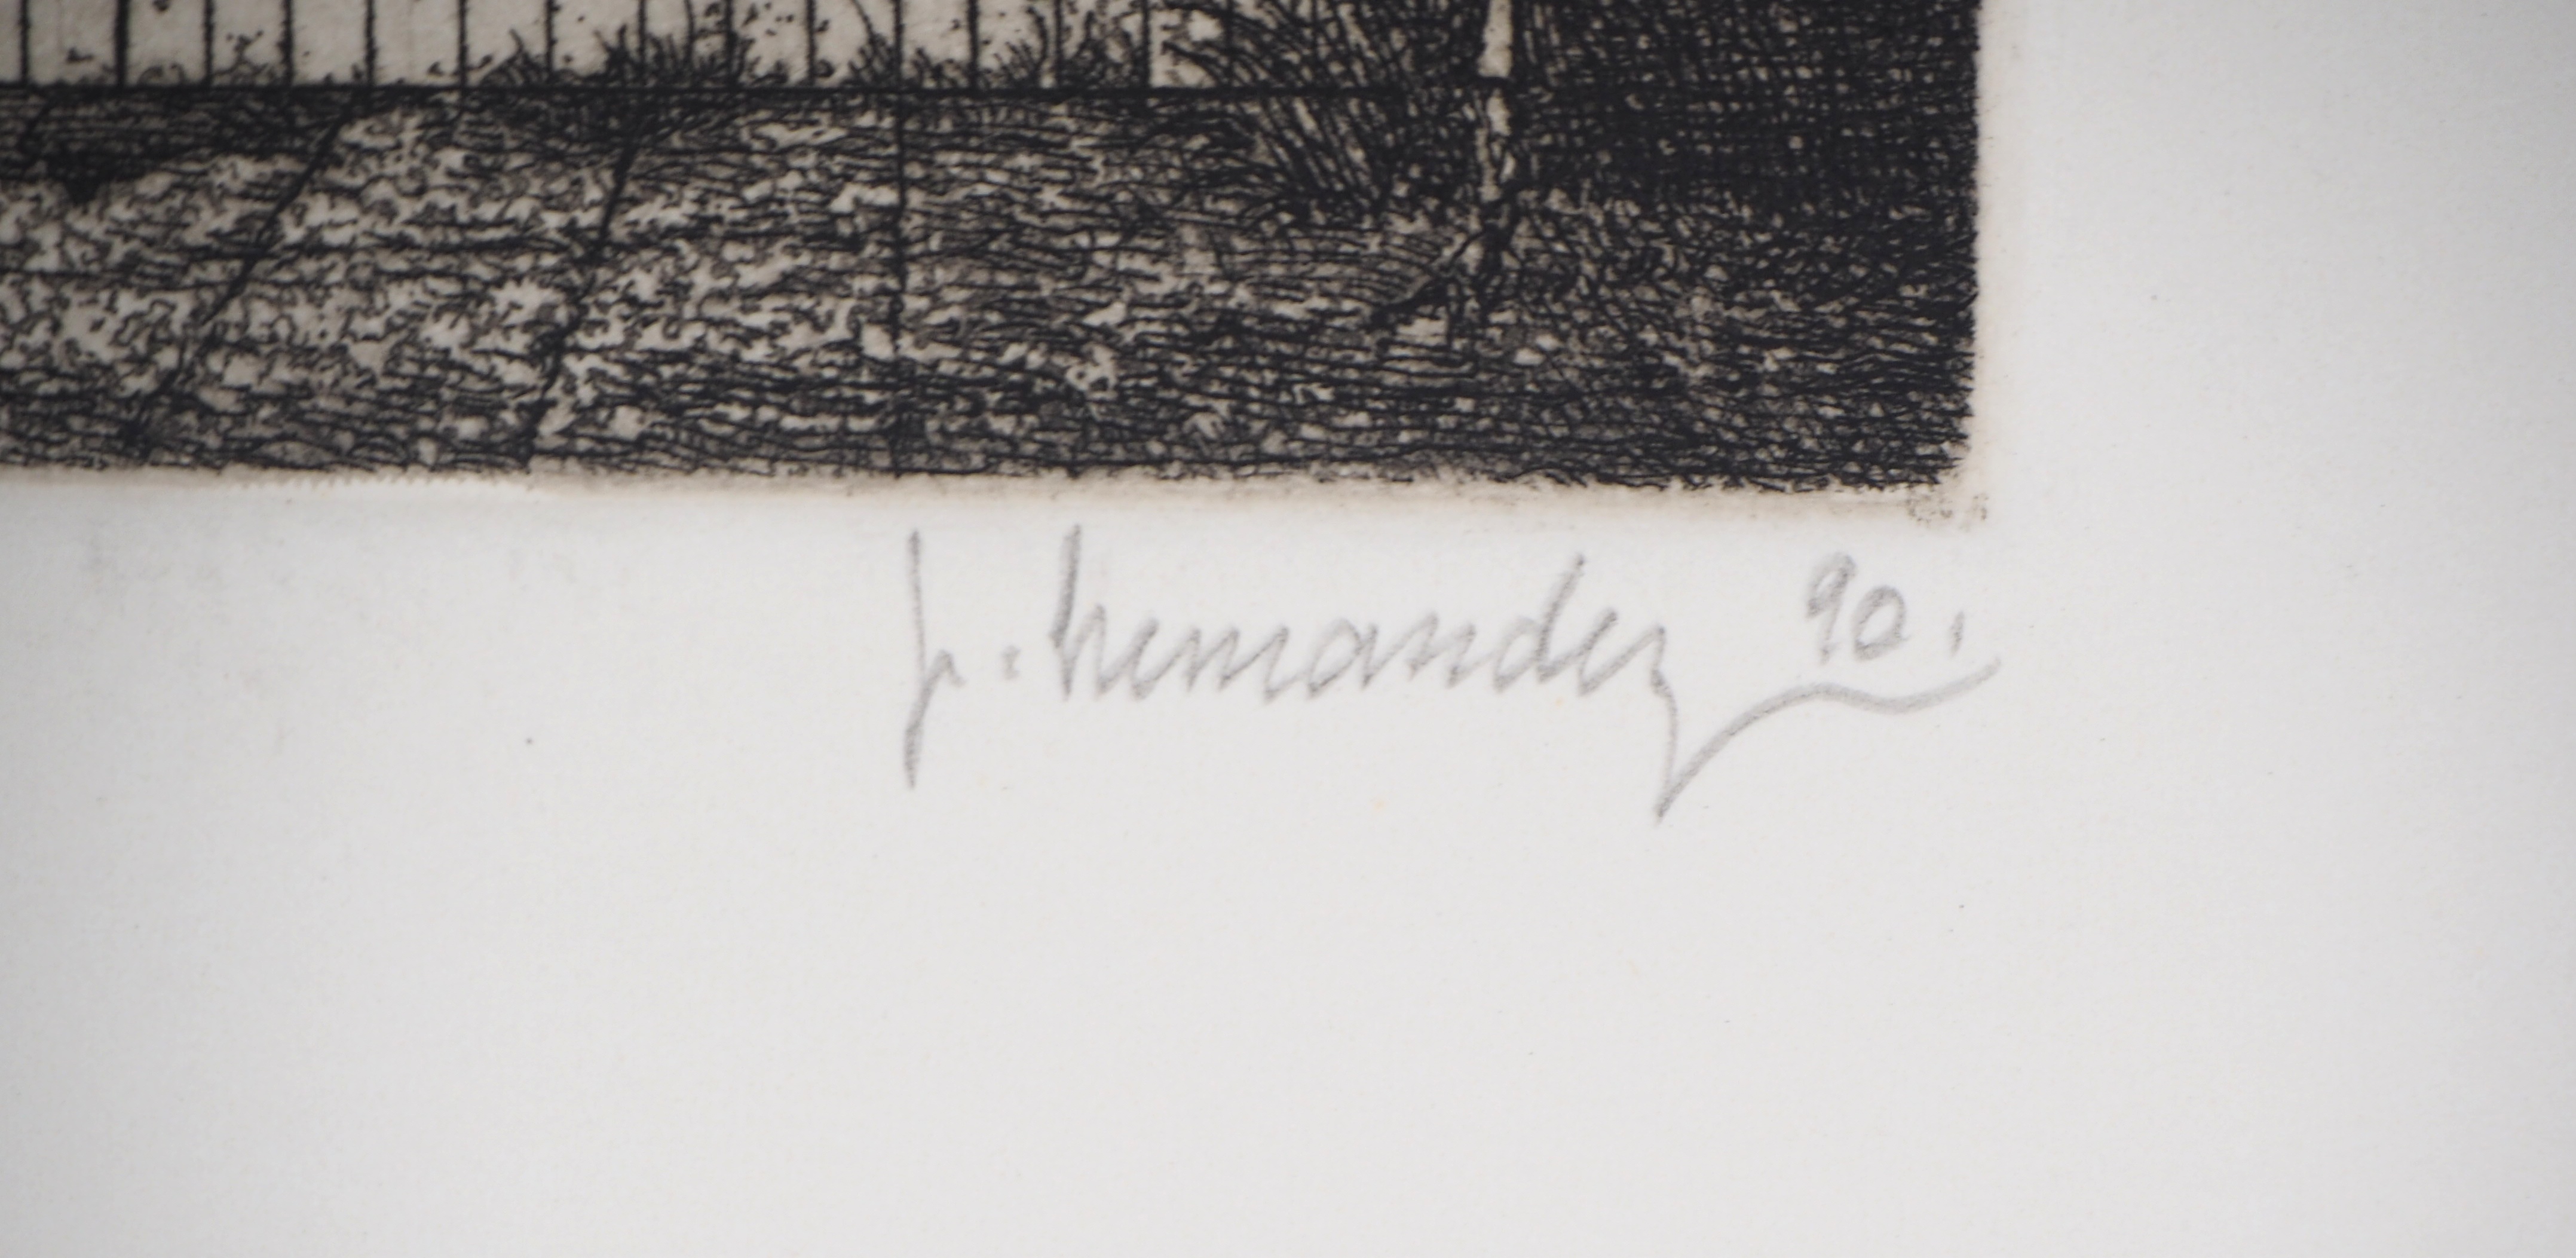 p. hernandez 90.